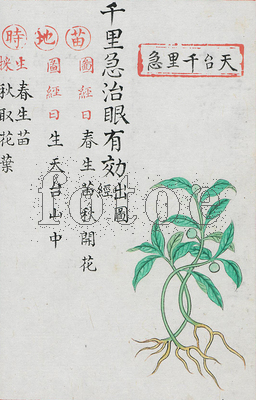 天台千里急
千里急治眼有効出圖經
苗
圖經曰春生苗秋開花
地
圖經曰生天台山中
時
生春生苗
採秋取花葉
fotoe